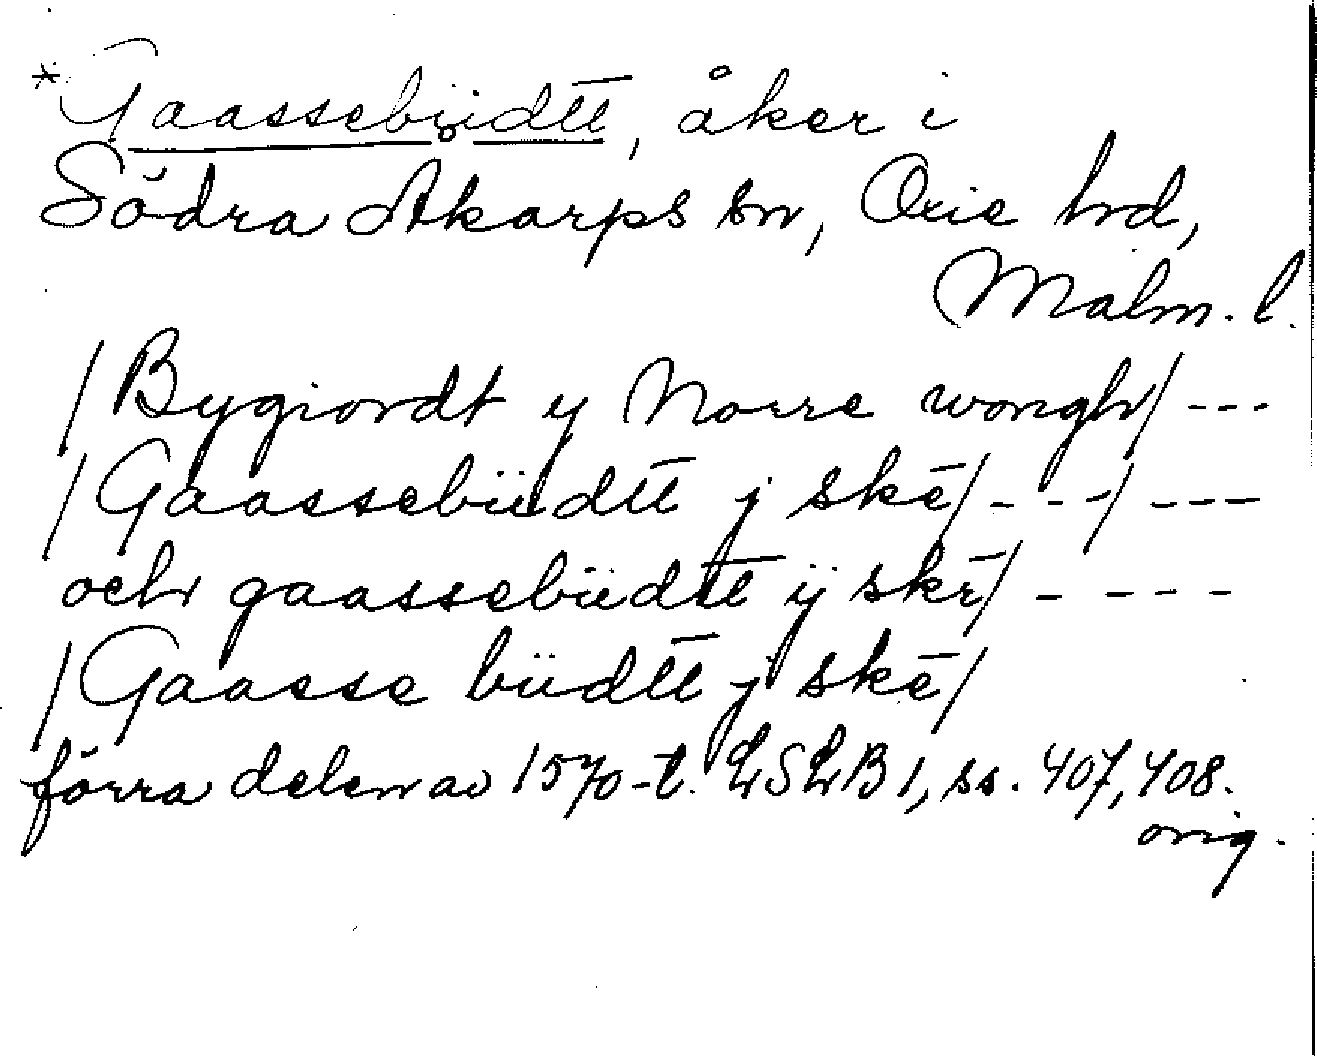 *Gaassebüdtt̄, åker i
Södra Åkarps sn, Oxie hd,
Malm. l.
/Bygiordt y Norre wongh/ ---
/Gaassebüdtt̄ j skē/ - - -/ ---
och gaassebüdtt̄ ÿ skē/ - - - -
/Gaasse büdtt̄ j skē/
förra delen av 1570-t. LSLB 1, ss. 407, 408.
orig.